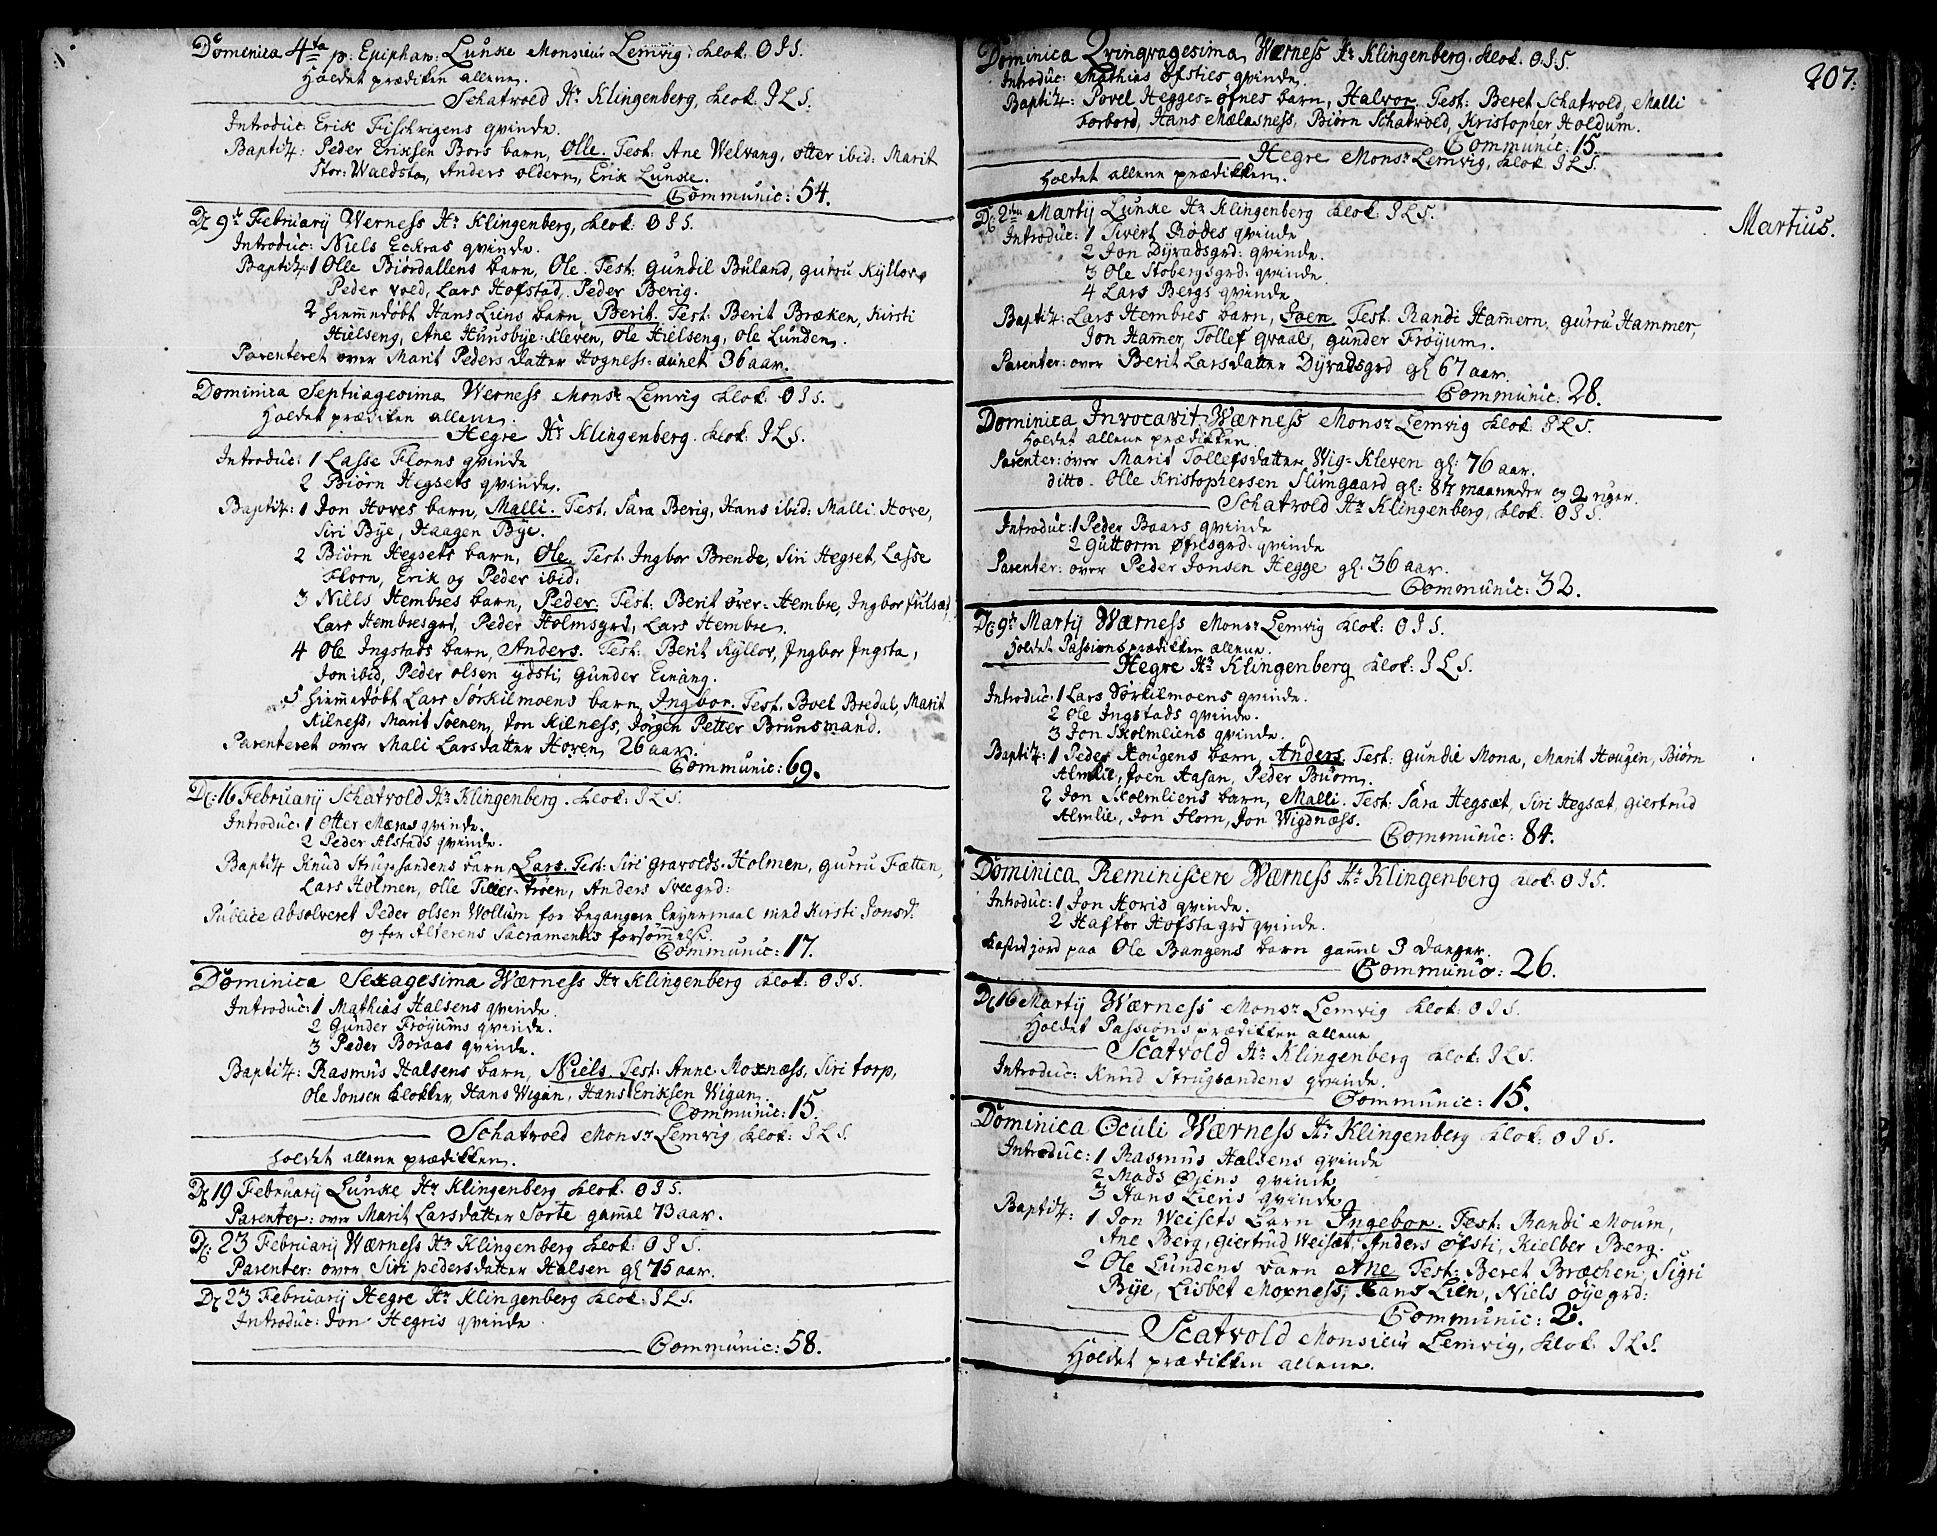 Domenica 4ta p: Epiphan: Lunke Monsieur Lemvig, klok. O I S.
Holdet prædiken allene.
Schatvold Hr Klingenberg, klok. I L S.
Introduc: Erik Fischvigens qvinde.
Baptiz: Peder Eriksen Bors barn, Olle. Test: Ane Welvang, otter ibid: Marit
Stor: Waldsta, Anders oldern, Erik Lunke.
Communic: 54.
D 9de February Werness Hr Klingenberg, klok: O I S.
Introduc: Niels Eckras qvinde.
Baptiz: 1 Olle Biördallens barn, Ole. Test: Gundil Buland, gurru Kyllov,
Peder Vold, Lars Hofstad, Peder Berig.
2 hiemmedöbt Hans Liens barn, Berit. Test: Berit Bræken, Kirsti
Hielseng, Ane Huusbye-kleven, Ole Hielseng, Ole Lunden.
Parenteret over Marit Peders datter Hogness-aunet 36 aar.
Dominica Septuagesima Werness Monsr Lemvig klok: O I S.
Holdet prædiken allene.
Hegre Hr Klingenberg. klok: I L S.
Introduc: 1 Lasse Florns qvinde
2 Biörn Hegsets qvinde.
Baptiz: 1 Jon Hoves barn, Malli. Test. Sara Berig, Hans ibid: Malli Hove,
Siri Bye, Haagen Bye.
2 Biörn Hegsets barn, Ole. Test: Ingbor Brende, Siri Hegset, Lasse
Florn, Erik og Peder ibid:
3 Niels Hembres barn, Peder. Test: Berit över-Hembre, Ingbor
Lars Hembresgrd, Peder Holmsgrd, Lars Hembre.
4 Ole Ingstads barn, Anders. Test: Berit Kyllov, Jngbor Jngsta,
Jon ibid, Peder olsen ydsti, Gunder Einang.
5 hiemmedöbt Lars Sörkilmoens barn, Ingbor. Test. Boel Bredal, Marit
Kilness, Marit Soenen, Jon Kilness, Jörgen Petter Brunsmand.
Parenteret over Mali Larsdatter Hoven, 26 aar.
Communic: 69.
D: 16 February Schatvold Hr Klingenberg. klok: I L S.
Introduc: 1 Otter Mæras qvinde.
2 Peder Alstads qvinde.
Baptiz Knud Strugsandens barn, Lars. Test: Siri Gravolds-Holmen, Gurru Fætten,
Lars Holmen, olle Tiller-tröen, Anders Sveegrd:
Publice Absolveret Peder olsen Wollum for begangene leyermaal med Kirsti Jonsd.
og for Alterens Sacramentes forsömmelse.
Communic: 17.
Dominica Sexagesima Wærness Hr Klingenberg klok: O I S.
Introduc: 1 Mathias Halsens qvinde.
2 Gunder Fröyums qvinde.
3 Peder Boraas qvinde.
Baptiz: Rasmus Halsens barn, Niels. Test: Anne Moxnæss, Siri torp,
Ole Jonsen klokker, Hans Wigan, Hans Eriksen Wigan.
Communic: 15.
Schatvold Monsr Lemvig, klok: I L S.
Holdet allene prædikken.
D 19 February Lunke Hr Klingenberg klok. O I S.
Parenter: over Marit Larsdatter Sorte gamel 73 aar.
D: 23 February Wærness Hr Klingenberg klok: O I S.
Parenter: over Siri pedersdatter Halsen gl 75 aar.
D: 23 February Hegre Hr Klingenberg klok: I L S.
Introduc: Jon Hegris qvinde
Communic: 58.
207.
Dominica Qvinqvagesima Wærness Hr Klingenberg. klok. O I S.
Introduc: Mathias öfsties qvinde.
Baptiz: Povel Hegges-öfnes barn, Halvor. Test: Beret Schatvold, Malli
Forbord, Hans Mælasness, Biörn Schatvold, Kristopher Holdum.
Communic: 15.
Hegre Monsr Lemvig, klok I L S.
Holdet allene prædikken.
Martius.
D: 2den Martij Lunke Hr Klingenberg klok: I L S.
Introduc: 1 Sivert Rödes qvinde
2 Jon Dyvadsgrd: qvinde.
3 Ole Stobergsgrd: qvinde.
4 Lars Bergs qvinde
Baptiz: Lars Hembres barn, Joen. Test: Randi Hamern, gurru Hammer,
Jon Hamer, Tollef qvaal, gunder Fröyum.
Parenter: over Berit Larsdatter Dyvadsgrd gl 67 aar.
Communic: 28.
Dominica Invocavit Wærness Monsr Lemvig klok. I L S.
Holdet allene prædikken.
Parenter: over Marit Tollefsdatter Wig-Kleven gl: 76 aar.
ditto. Olle Kristophersen Slungaard gl: 8 maaneder og 2 uger.
Schatvold Hr Klingenberg, klok. O I S.
Introduc: 1 Peder Baars qvinde
2 Guttorm Öfresgrd: qvinde
Parenter: over Peder Jonsen Hegge gl: 36 aar.
Communic: 32.
D: 9de Martij Wærness Monsr Lemvig klok: O I S.
Holdet Passions prædikken allene.
Hegre Hr Klingenberg klok: I L S.
Introduc: 1 Lars Sörkilmoens qvinde.
2 Ole Ingstads qvinde.
3 Jon Skolmliens qvinde.
Baptiz: 1 Peder Hougens barn, Anders. Test: Gundil Mona, Marit Hougen, Biörn
Almlie, Joen Aasan, Peder Buom.
2 Jon Skolmliens barn, Malli. Test: Sara Hegsæt, Siri Hegsæt, giertrud
Almlie, Jon Florn, Jon Wigdnæss.
Communic: 84.
Dominica Reminiscere Wærness Hr Klingenberg klok: O I S.
Introduc: 1 Jon Hovis qvinde.
2 Haftor Hofsta grd qvinde.
kasted jord paa Ole Bangens barn gamel 3 dager.
Communic: 26.
D 16 Martij Wærness Monsr Lemvig klok: O I S.
Holdet Passions prædikken allene
Scatvold Hr Klingenberg klok: I L S.
Introduc: Knud Strugsandens qvinde.
Communic: 15.
Dominica Oculi Wærness Hr Klingenberg klok: O I S.
Introduc: 1 Rasmus Halsens qvinde
2 Mads Öiens qvinde
3 Hans Liens qvinde
Baptiz: 1 Jon Weisets barn Ingebor. Test: Randi Moum,
Ane Berg, giertrud Weisæt, Anders Öfsti, Kielber Berg.
2 Ole Lundens barn Ane Test: Beret Bræchen, Sigri
Bye, Lisbet Moxness, Hans Lien, Niels öyegrd:
Communic: 2.
Scatvold Monsieur Lemvig, klok. I L S.
Holdet prædikken allene.